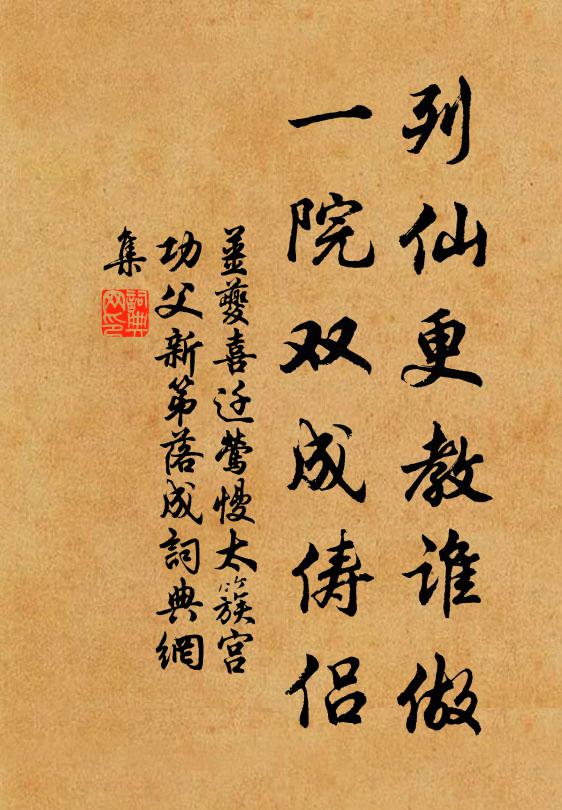 列仙更教谁做
一院双成俦侣
姜夔喜迁莺慢太簇宫
功父新第落成詞典網
集
詞典网印